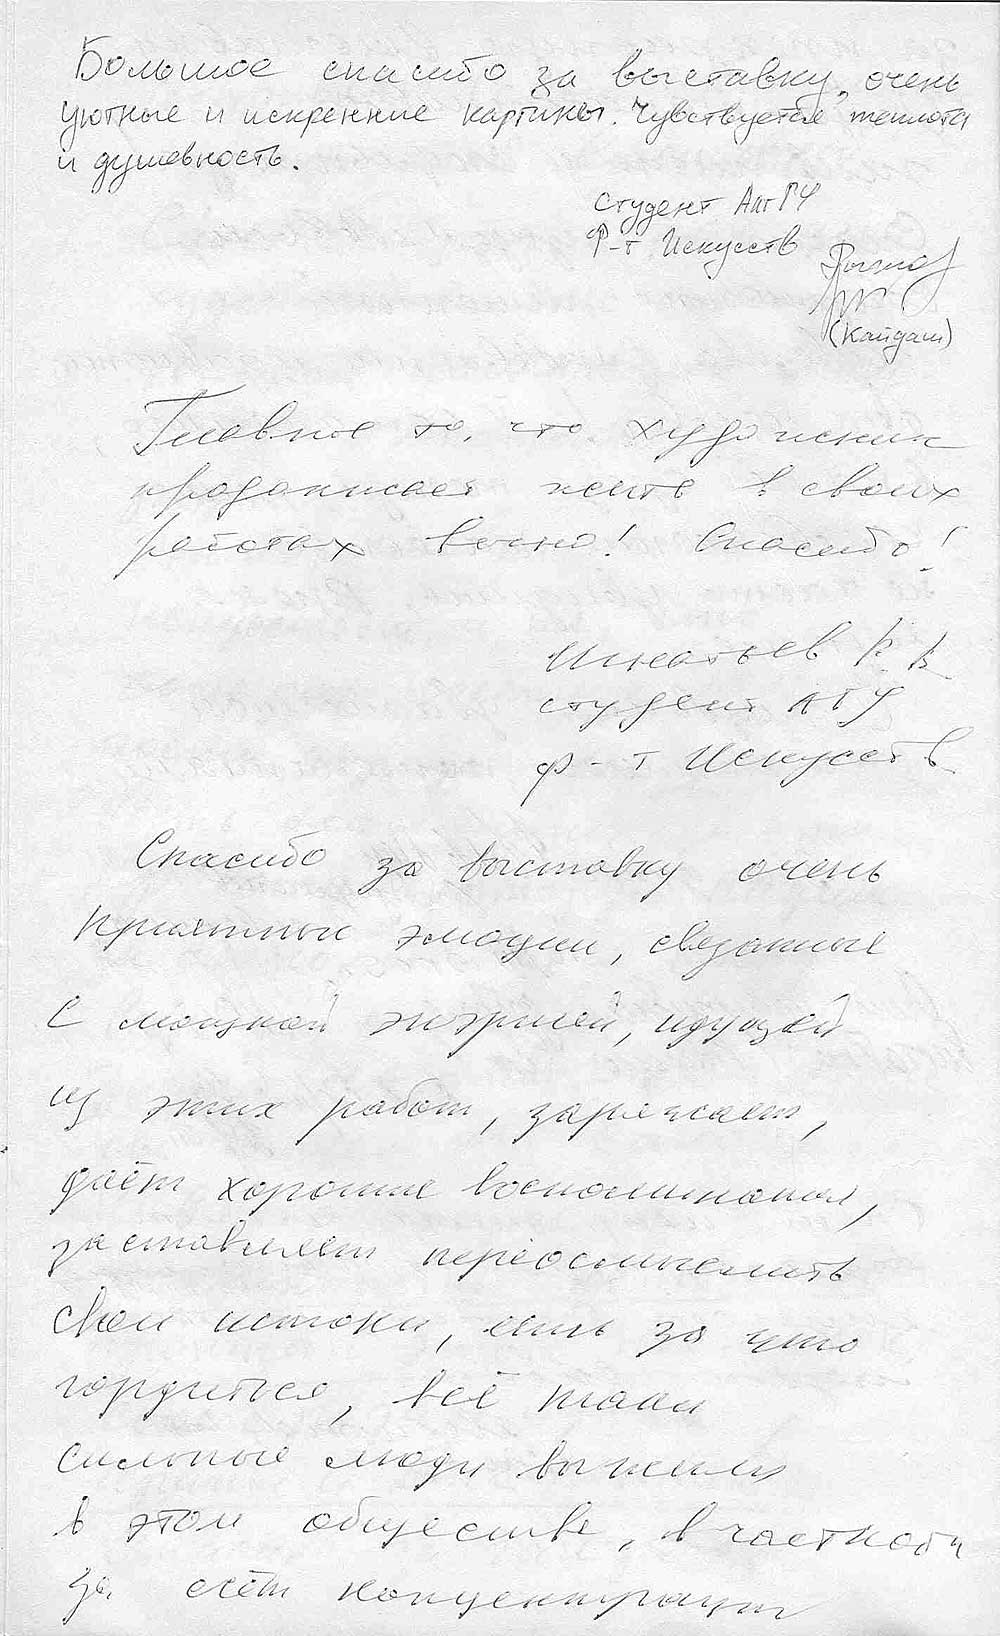 Большое спасибо за выставку, очень
уютные и искренние картины. Чувствуется теплота
и душевность.
студент АлтГУ
Ф-т Искусств
(Кайдаш)
Главное то, что художник
продолжает жить в своих
работах вечно! Спасибо!
Игнатьев К В
студент АГУ
ф-т Искусств
Спасибо за выставку очень
приятные эмоции, связанные
с мощной энэргией, идущей
из этих работ, заряжает,
даёт хорошие воспоминания,
заставляет переосмыслить
свои истоки, есть за что
гордиться, всё таки
сильные люди выжили
в этом обществе, в частности
за счёт концентрации